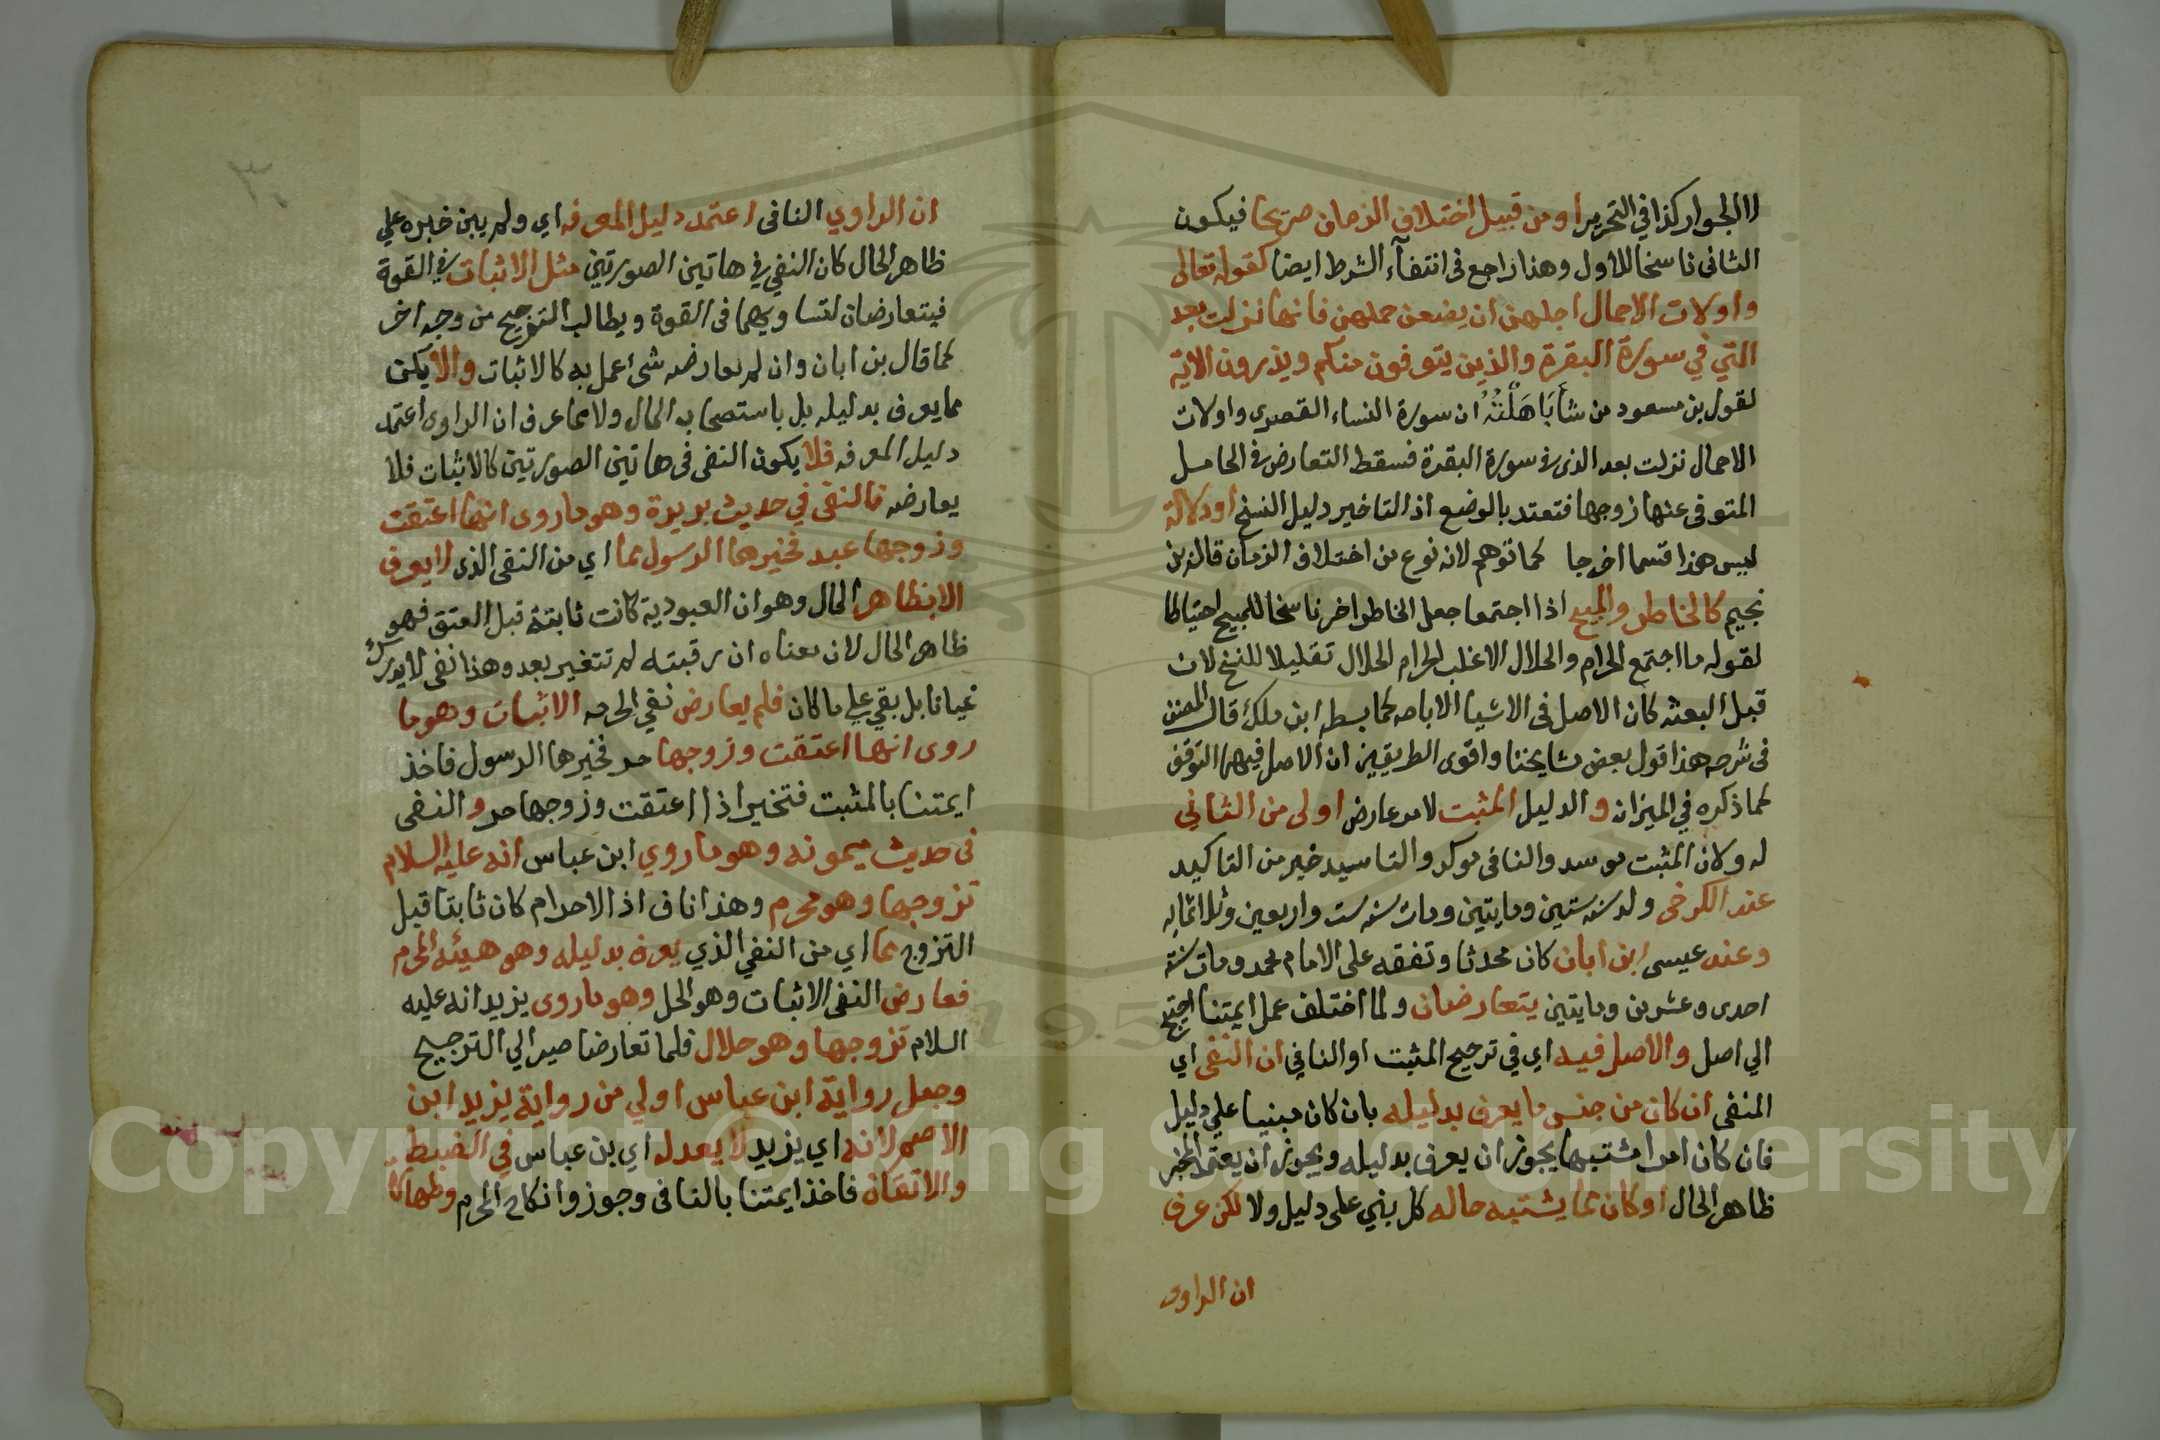 االجوار كذا في التحرير او من قبيل اختلاف الزمان صريحا فيكون
الثانى ناسخا للاول وهذا راجع فى انتفآء الشرط ايضا كقوله تعالى
واولات الاحمال اجلهن ان يضعن حملهن فانها نزلت بعد
التي في سورة البقرة والذين يتوفون منكم ويذرون الاية
لقول بن مسعود من شآ بَاهَلْتُهُ ان سورة النساء القصرى واولات
الاحمال نزلت بعد الذى فى سورة البقرة فسقط التعارض فى الحامل
المتوفى عنها زوجها فتعتد بالوضع اذ التاخير دليل النسخ او دلالة
ليس هذا قسما اخر جا كما توهم لانه نوع من اختلاف الزمان قاله بن
نجيم كالخاطر والمبيح اذا اجتمعا جعل الخاطر اخر ناسخا للمبيح احتياطا
لقوله ما اجتمع الحرام والحلال الا غلب الحرام الحلال تقليلا للنسخ لان
قبل البعثه كان الاصل فى الاشيا الاباحه كما بسطه ابن ملك قال المصنف
فى شرحه هذا قول بعض مشايخنا واقوى الطريقين ان الاصل فيهما التوقف
كما ذكره في الميزان و الدليل المثبت لامر عارض اولى من الثاني
له ولان المثبت موسس والنافى موكد والتاسيد خير من التاكيد
عند الكرخى ولد سنه ستين ومايتين ومات سنه ست واربعين وثلاثمايه
وعند عيسى ابن ابان كان محدثا وتفقه على الامام محمد ومات سنة
احدى وعشرين ومايتين يتعارضان ولما اختلف عمل ايمتنا احتج
الي اصل والاصل فيه اي في ترجيح المثبت او النافي ان النفى اي
المنفى ان كان من جنس ما يعرف بدليله بان كان مبنيا علي دليل
فان كان امرا مشتبها يجوز ان يعرف بدليله ويجوز ان يعتمد المخبر
ظاهر الحال او كان مما يشتبه حاله كل بني على دليل ولا لكن عرف
ان الراوى
ان الراوي النافى اعتمد دليل المعرفه اي ولم يبن خبره علي
ظاهر الحال كان النفي في هاتين الصورتين مثل الاثبات فى القوة
فيتعارضان لتساويهما فى القوة ويطالب الترجيح من وجه اخر
كما قال بن ابان وان لم يعارضه شى اعمل به كالاثبات والا يكن
مما يعرف بدليله بل باستصحاب الحال ولا مما عرف ان الراوى اعتمد
دليل المعرفه فلا يكون النفى فى هاتين الصورتين كالاثبات فلا
يعارضه فالنفى في حديث بريرة وهو ما روى انها اعتقت
وزوجها عبد فخيرها الرسول مما اي من النفى الذى لا يعرف
الا بظاهر الحال وهو ان العبودية كانت ثابتة قبل العتق فهو
ظاهر الحال لان معناه ان رقبته لم تتغير بعد وهذا نفى لا يدرك
عيانا بل بقي علي ما كان فلم يعارض نفي الحريه الاثبات وهو ما
روى انها اعتقت وزوجها حر فخيرها الرسول فاخذ
ايمتنا بالمثبت فتخير اذا اعتقت وزوجها حر و النفى
فى حديث ميمونه وهو ما روي ابن عباس انه عليه السلام
تزوجها وهو محرم وهذا ناف اذ الاحرام كان ثابتا قبل
التزوج مما اي من النفي الذي يعرف بدليله وهو هيئه المحرم
فعارض النفى الاثبات وهو الحل وهو ما روى يزيد انه عليه
السلام تزوجها وهو حلال فلما تعارضا صير الي الترجيح
وجعل رواية ابن عباس اولي من رواية يزيد ابن
الاصم لانه اي يزيد لا يعدله اي بن عباس في الضبط
والاتقان فاخذ ايمتنا بالنافى وجوزوا نكاح المحرم وطهارة
1957
Copyright © King Saud University